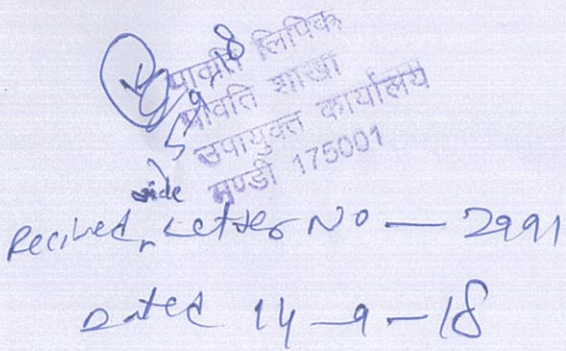 पावती लिपिक
पावति शाखा
उपायुक्त कार्यालय
मण्डी 175001
vide
Recived, Letter No — 2991
Dated 14-9-18